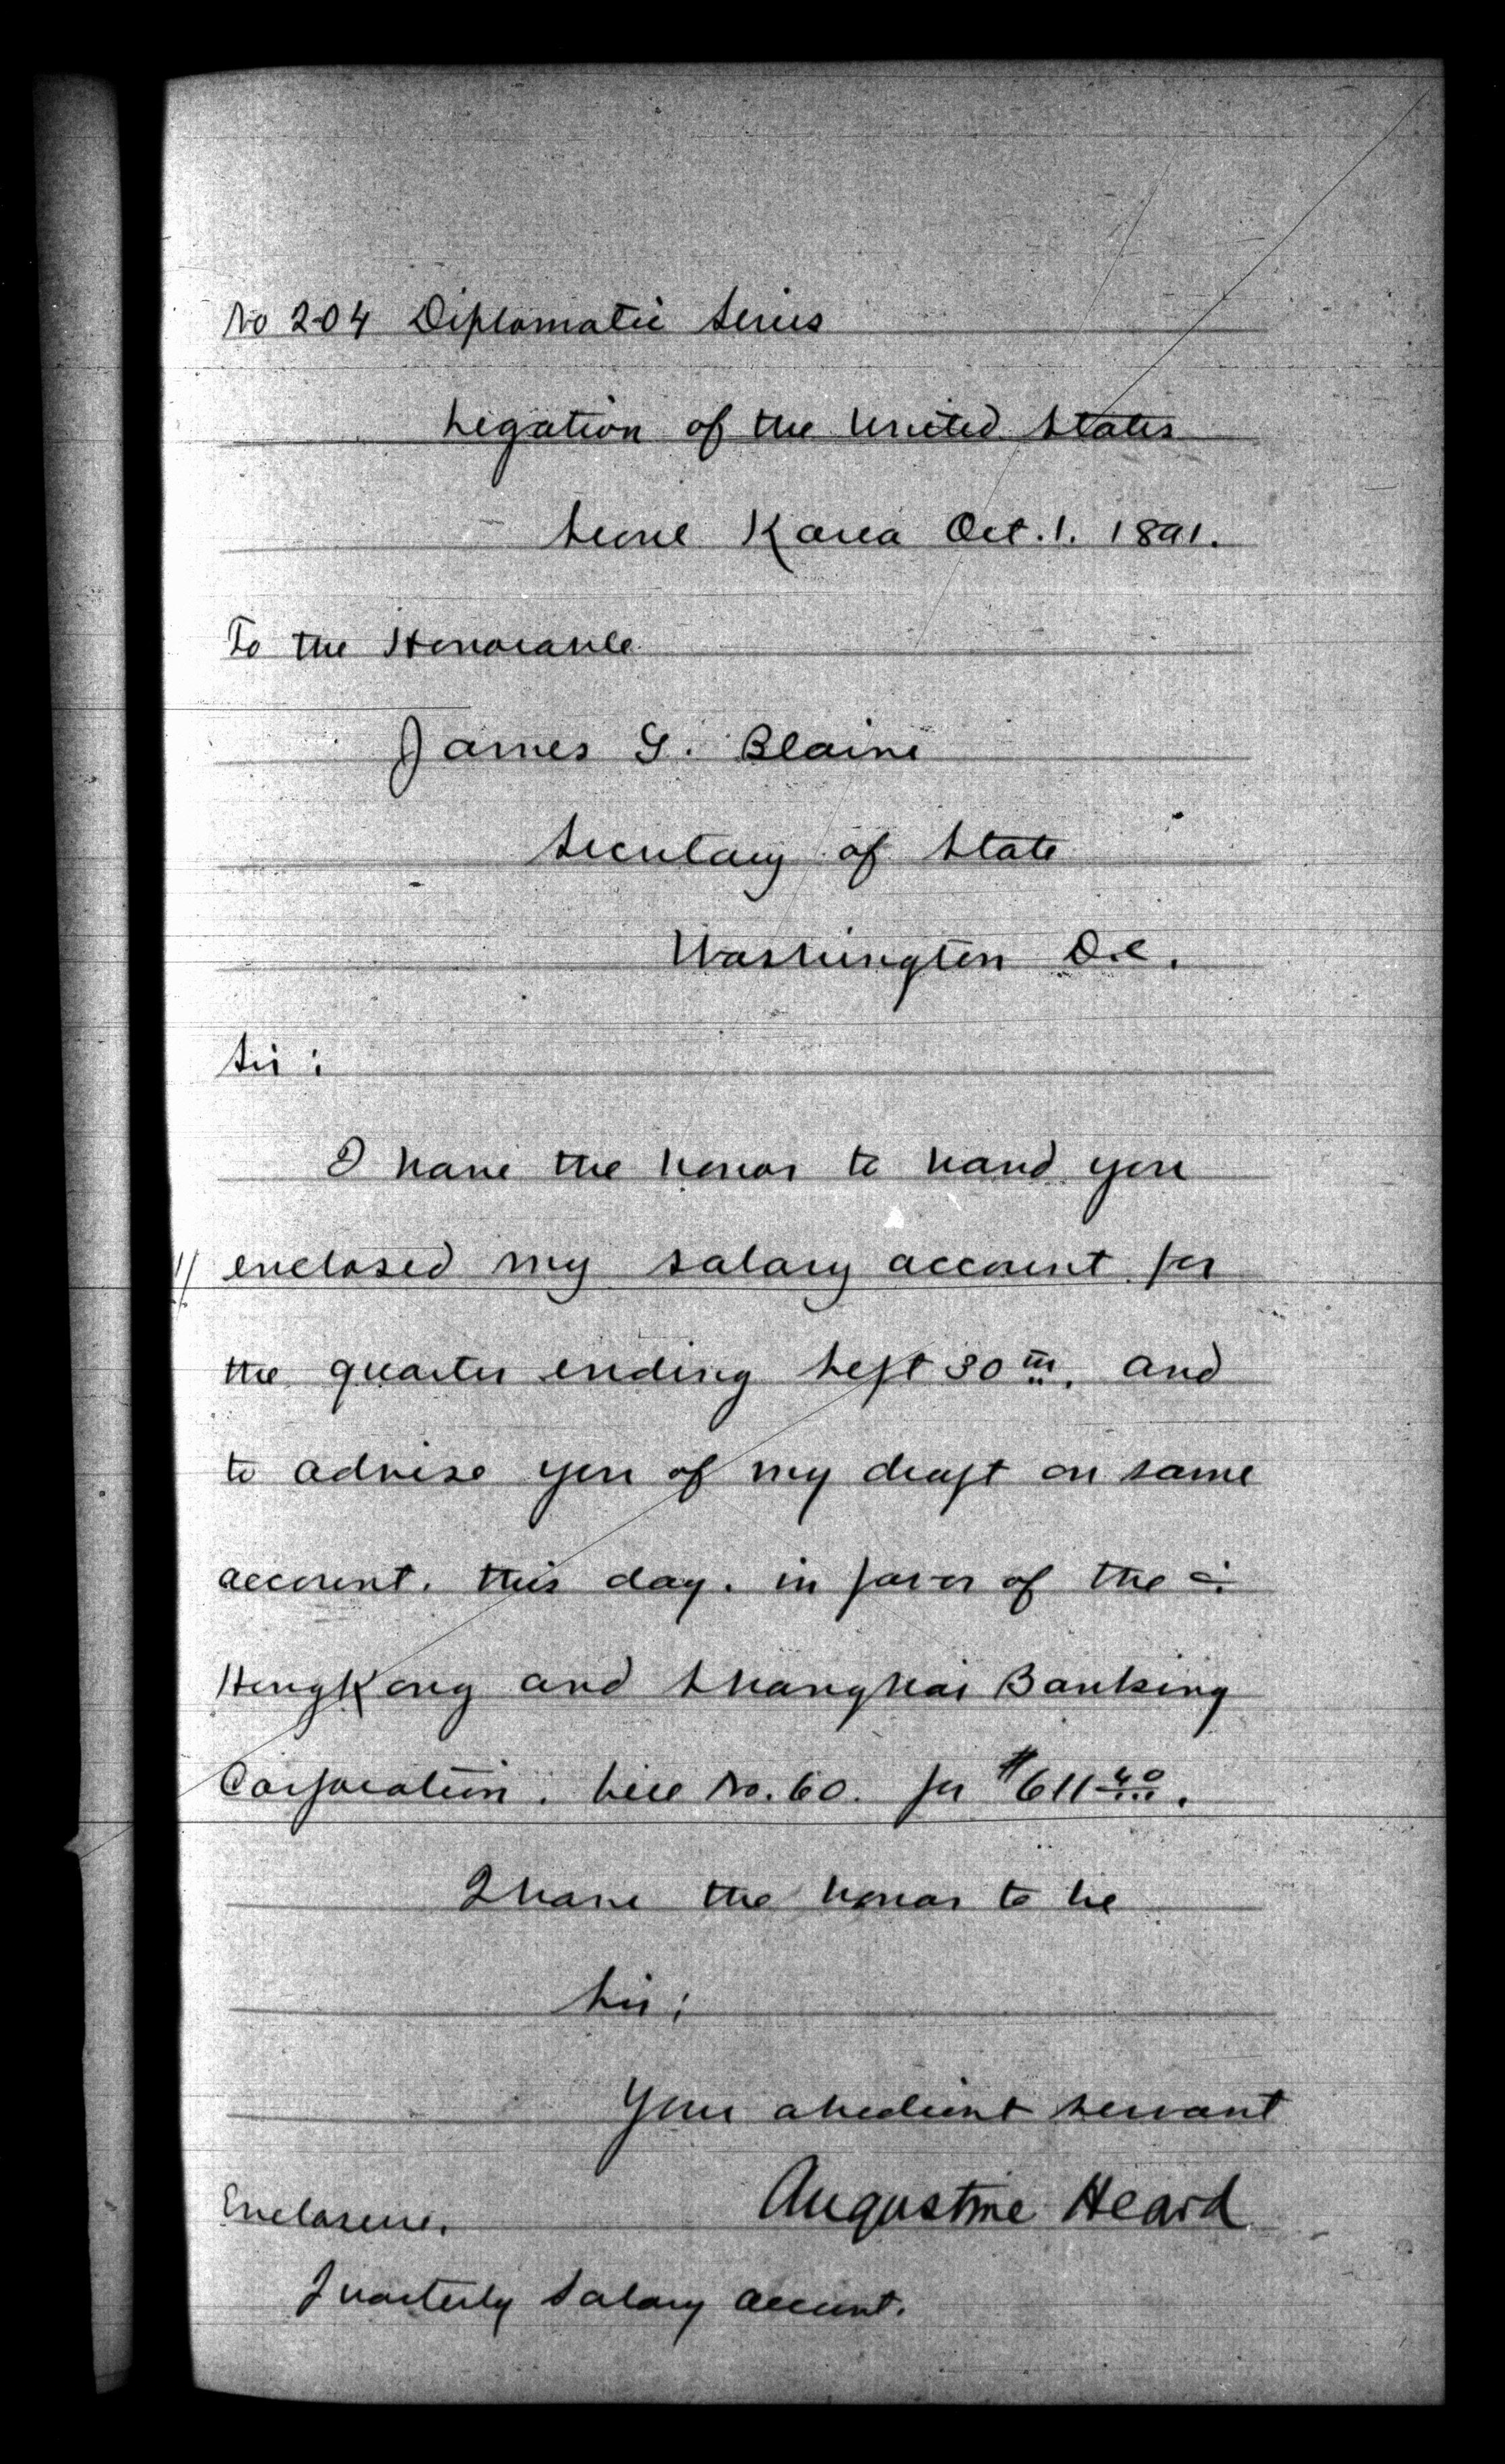 No 204 Diplomatic Series
Legation of the United States
Seoul Korea Oct. 1. 1891.
To the Honorable
James G. Blaine
Secretary of State
Washington D.C.
Sir:
I have the honor to hand you
enclosed my salary account for
the quarter ending Sept 30th. and
to advise you of my draft on same
account. this day. in favor of the
HongKong and Shanghai Banking
Corporation. No. 60. for $611 40.
I have the honor to be
Sir;
Your obedient servant
Augustine Heard
Enclosure.
Quarterly Salary account.